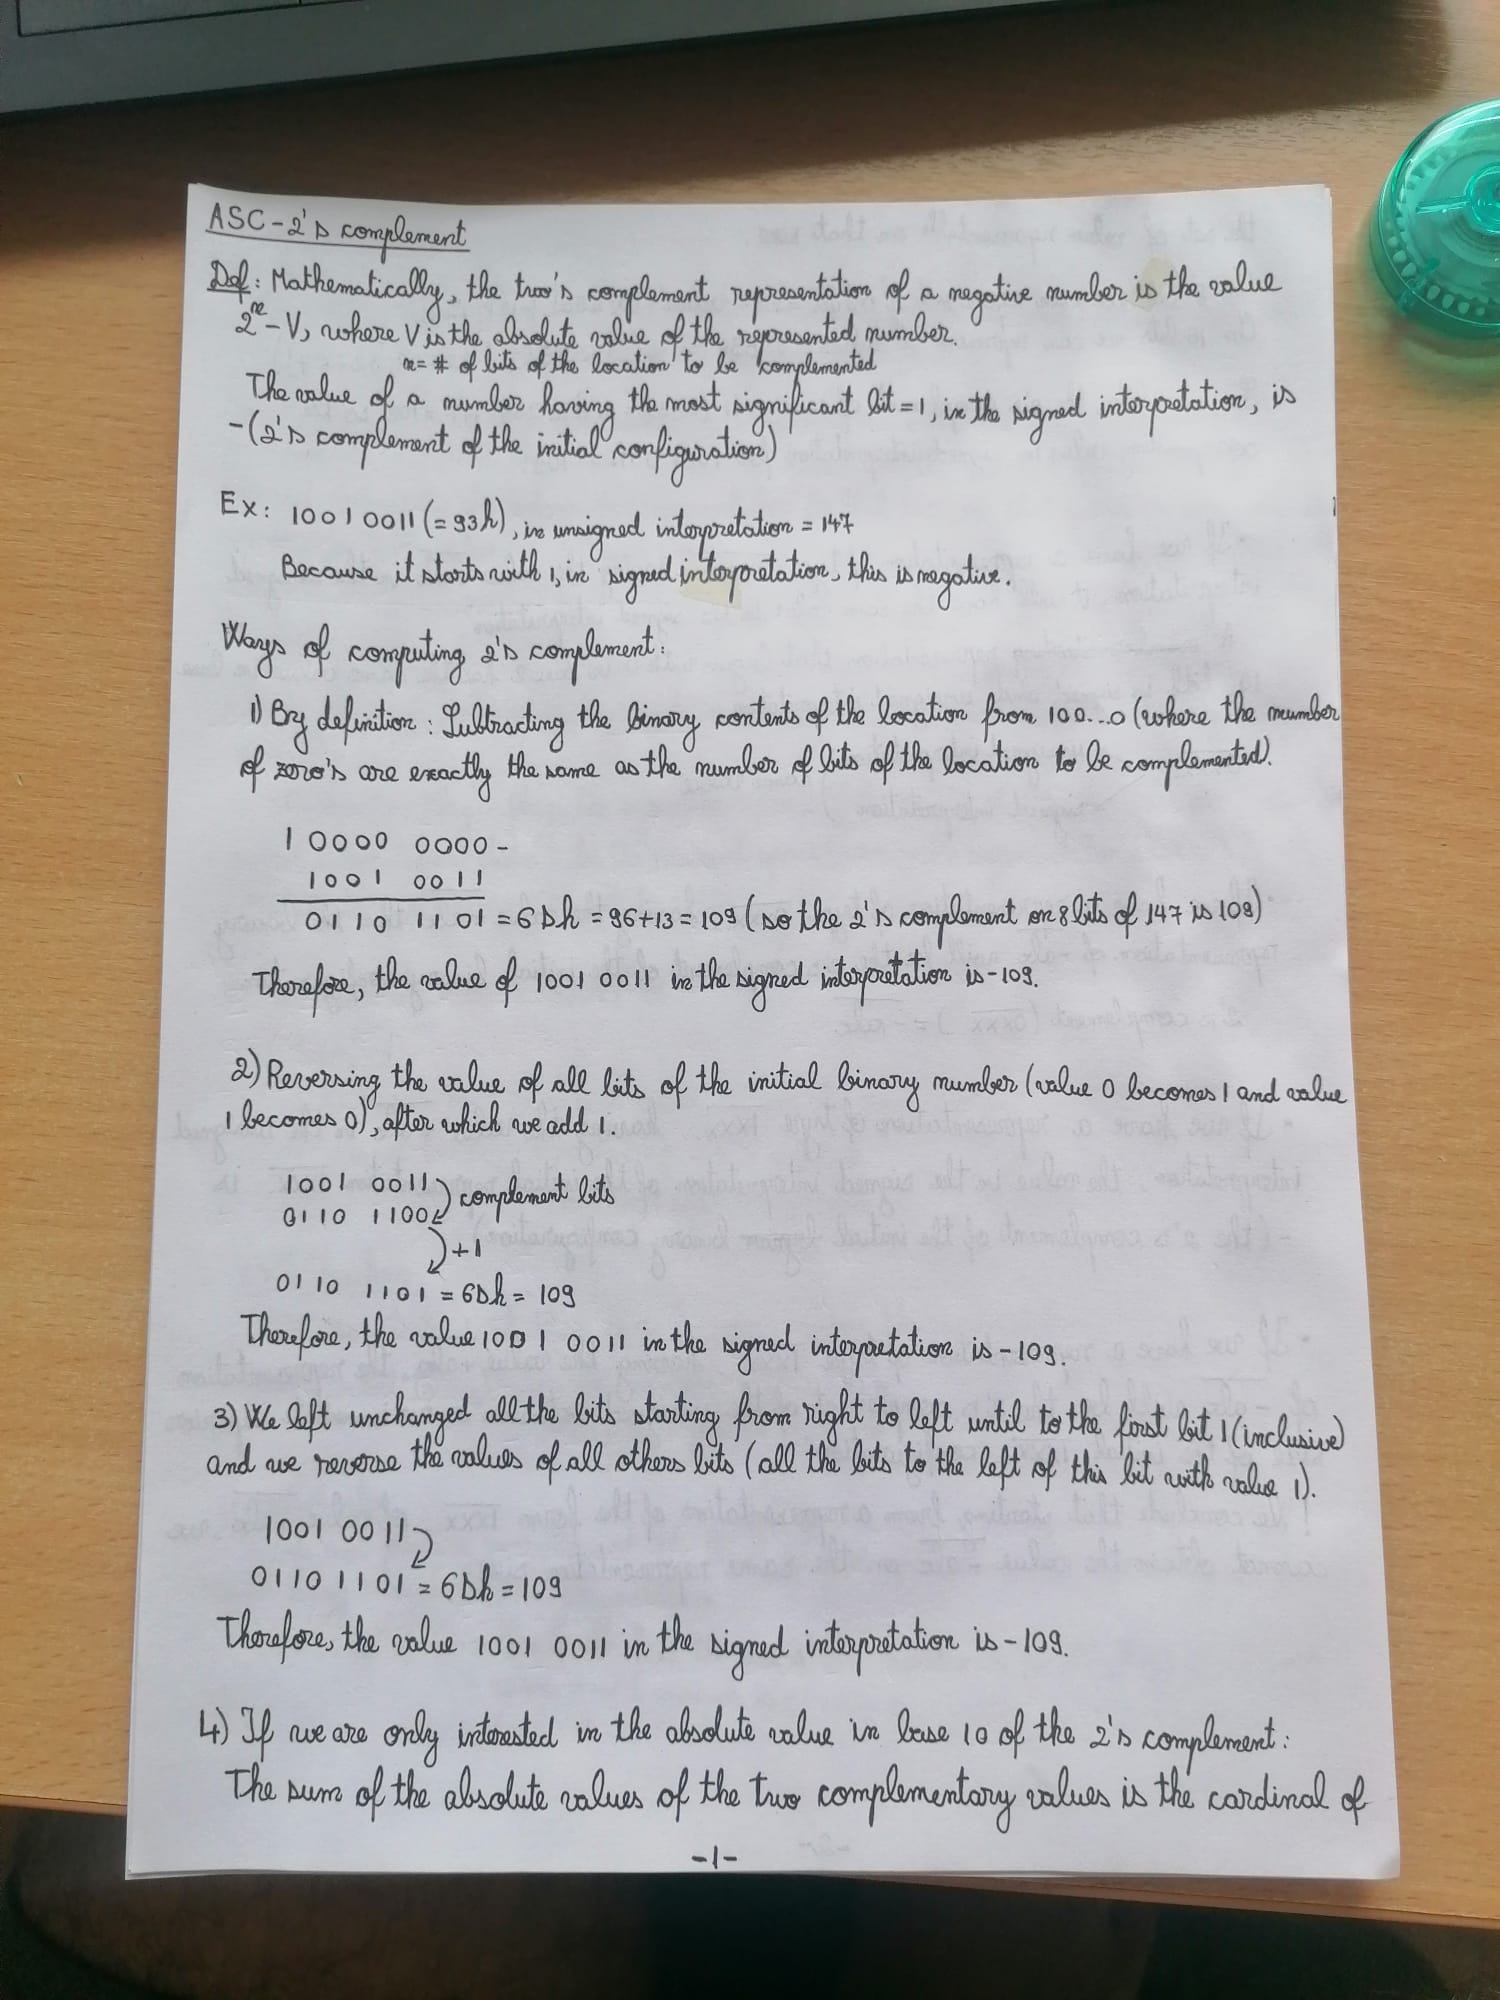 ASC - 2's complement
Def: Mathematically, the two's complement representation of a negative number is the value
2^n - V, where V is the absolute value of the represented number.
n = # of bits of the location to be complemented
The value of a number having the most significant bit = 1, in the signed interpretation, is
-(2's complement of the initial configuration)
Ex: 1001 0011 (= 93h), in unsigned interpretation = 147
Because it starts with 1, in signed interpretation, this is negative.
Ways of computing 2's complement:
1) By definition: Subtracting the binary contents of the location from 100...0 (where the number
of zero's are exactly the same as the number of bits of the location to be complemented).
1 0000 0000 -
1001 0011
0110 1101 = 6Dh = 96+13 = 109 (so the 2's complement on 8 bits of 147 is 109)
Therefore, the value of 1001 0011 in the signed interpretation is -109.
2) Reversing the value of all bits of the initial binary number (value 0 becomes 1 and value
1 becomes 0), after which we add 1.
1001 0011
complement bits
0110 1100
+1
0110 1101 = 6Dh = 109
Therefore, the value 1001 0011 in the signed interpretation is -109.
3) We left unchanged all the bits starting from right to left until to the first bit 1 (inclusive)
and we reverse the values of all others bits (all the bits to the left of this bit with value 1).
1001 0011
0110 1101 = 6Dh = 109
Therefore, the value 1001 0011 in the signed interpretation is -109.
4) If we are only interested in the absolute value in base 10 of the 2's complement:
The sum of the absolute values of the two complementary values is the cardinal of
-1-